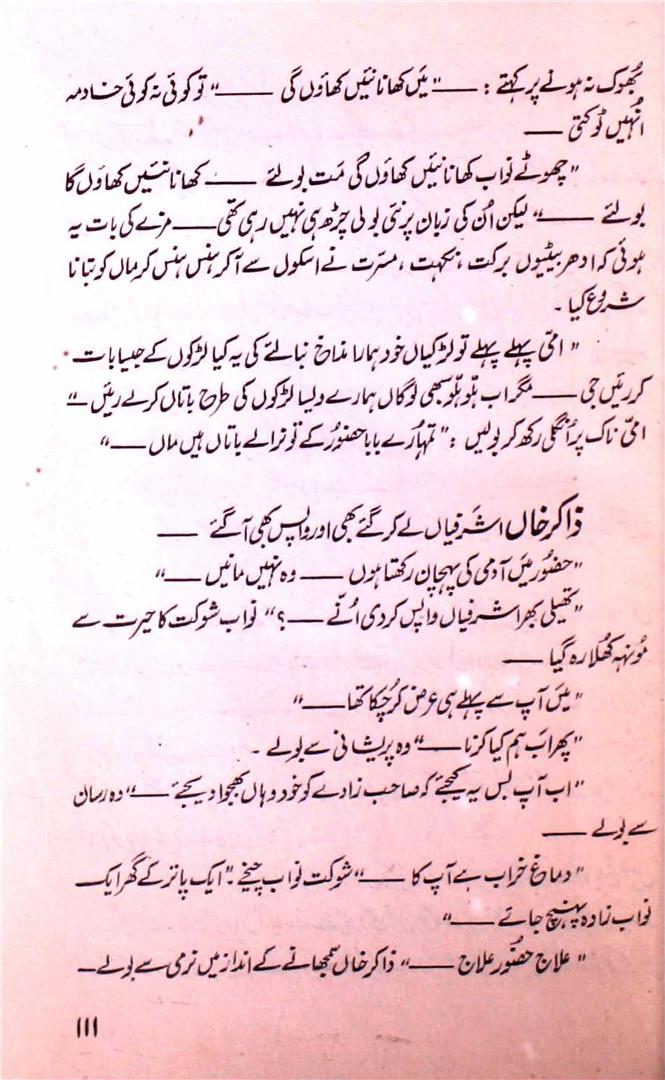 بھوک نہ ہونے پر کہتے : ــــ "میں کھانا نئیں کھاؤں گی ــــ" تو کوئی نہ کوئی خادمہ
انہیں ٹوکتی ــــ
"چھوٹے نواب کھانا نئیں کھاؤں گی مَت بولئے ــــ کھانا نئیں کھاؤں گا
بولئے ــــ" لیکن اُن کی زبان پر نئی بولی چڑھ ہی نہیں رہی تھی ــــ مزے کی بات یہ
ہوئی کہ ادھر بیٹیوں برکت، نکہت، مسرّت نے اسکول سے آ کر ہنس ہنس کر ماں کو بتانا
شروع کیا۔
"امّی پہلے پہلے تو لڑکیاں خود ہمارا مذاخ نبالئے کی یہ کیا لڑکوں کے جیسا بات
کر رئیں جی ــــ مگر اب ہلّو ہلّو سبھی لوگاں ہمارے ویسا لڑکوں کی طرح باتاں کرلے رئیں ــــ"
امّی ناک پر اُنگلی رکھ کر بولیں : "تمہارے بابا حضور کے تو نرالے باتاں ہیں ماں ــــ"
ذاکر خاں اشرفیاں لے کر گئے بھی اور واپس بھی آ گئے ــــ
"حضور میں آدمی کی پہچان رکھتا ہوں ــــ وہ نہیں مانیں ــــ"
"تھیلی بھر اشرفیاں واپس کر دی انّے ــــ؟" نواب شوکت کا حیرت سے
مونہہ کھُلا رہ گیا ــــ
"میں آپ سے پہلے ہی عرض کر چُکا تھا ــــ"
"پھر اَب ہم کیا کرنا ــــ" وہ پریشانی سے بولے۔
"اب آپ بس یہ کیجئے کہ صاحب زادے کو خود وہاں بھجوا دیجئے ــــ" وہ رسان
سے بولے ــــ
"دماغ خراب ہے آپ کا ــــ" شوکت نواب چیخے۔ "ایک پاتر کے گھر ایک
نواب زادہ پہنچ جاتے ــــ"
"علاج حضور علاج ــــ" ذاکر خاں سمجھانے کے انداز میں نرمی سے بولے ــــ
۱۱۱